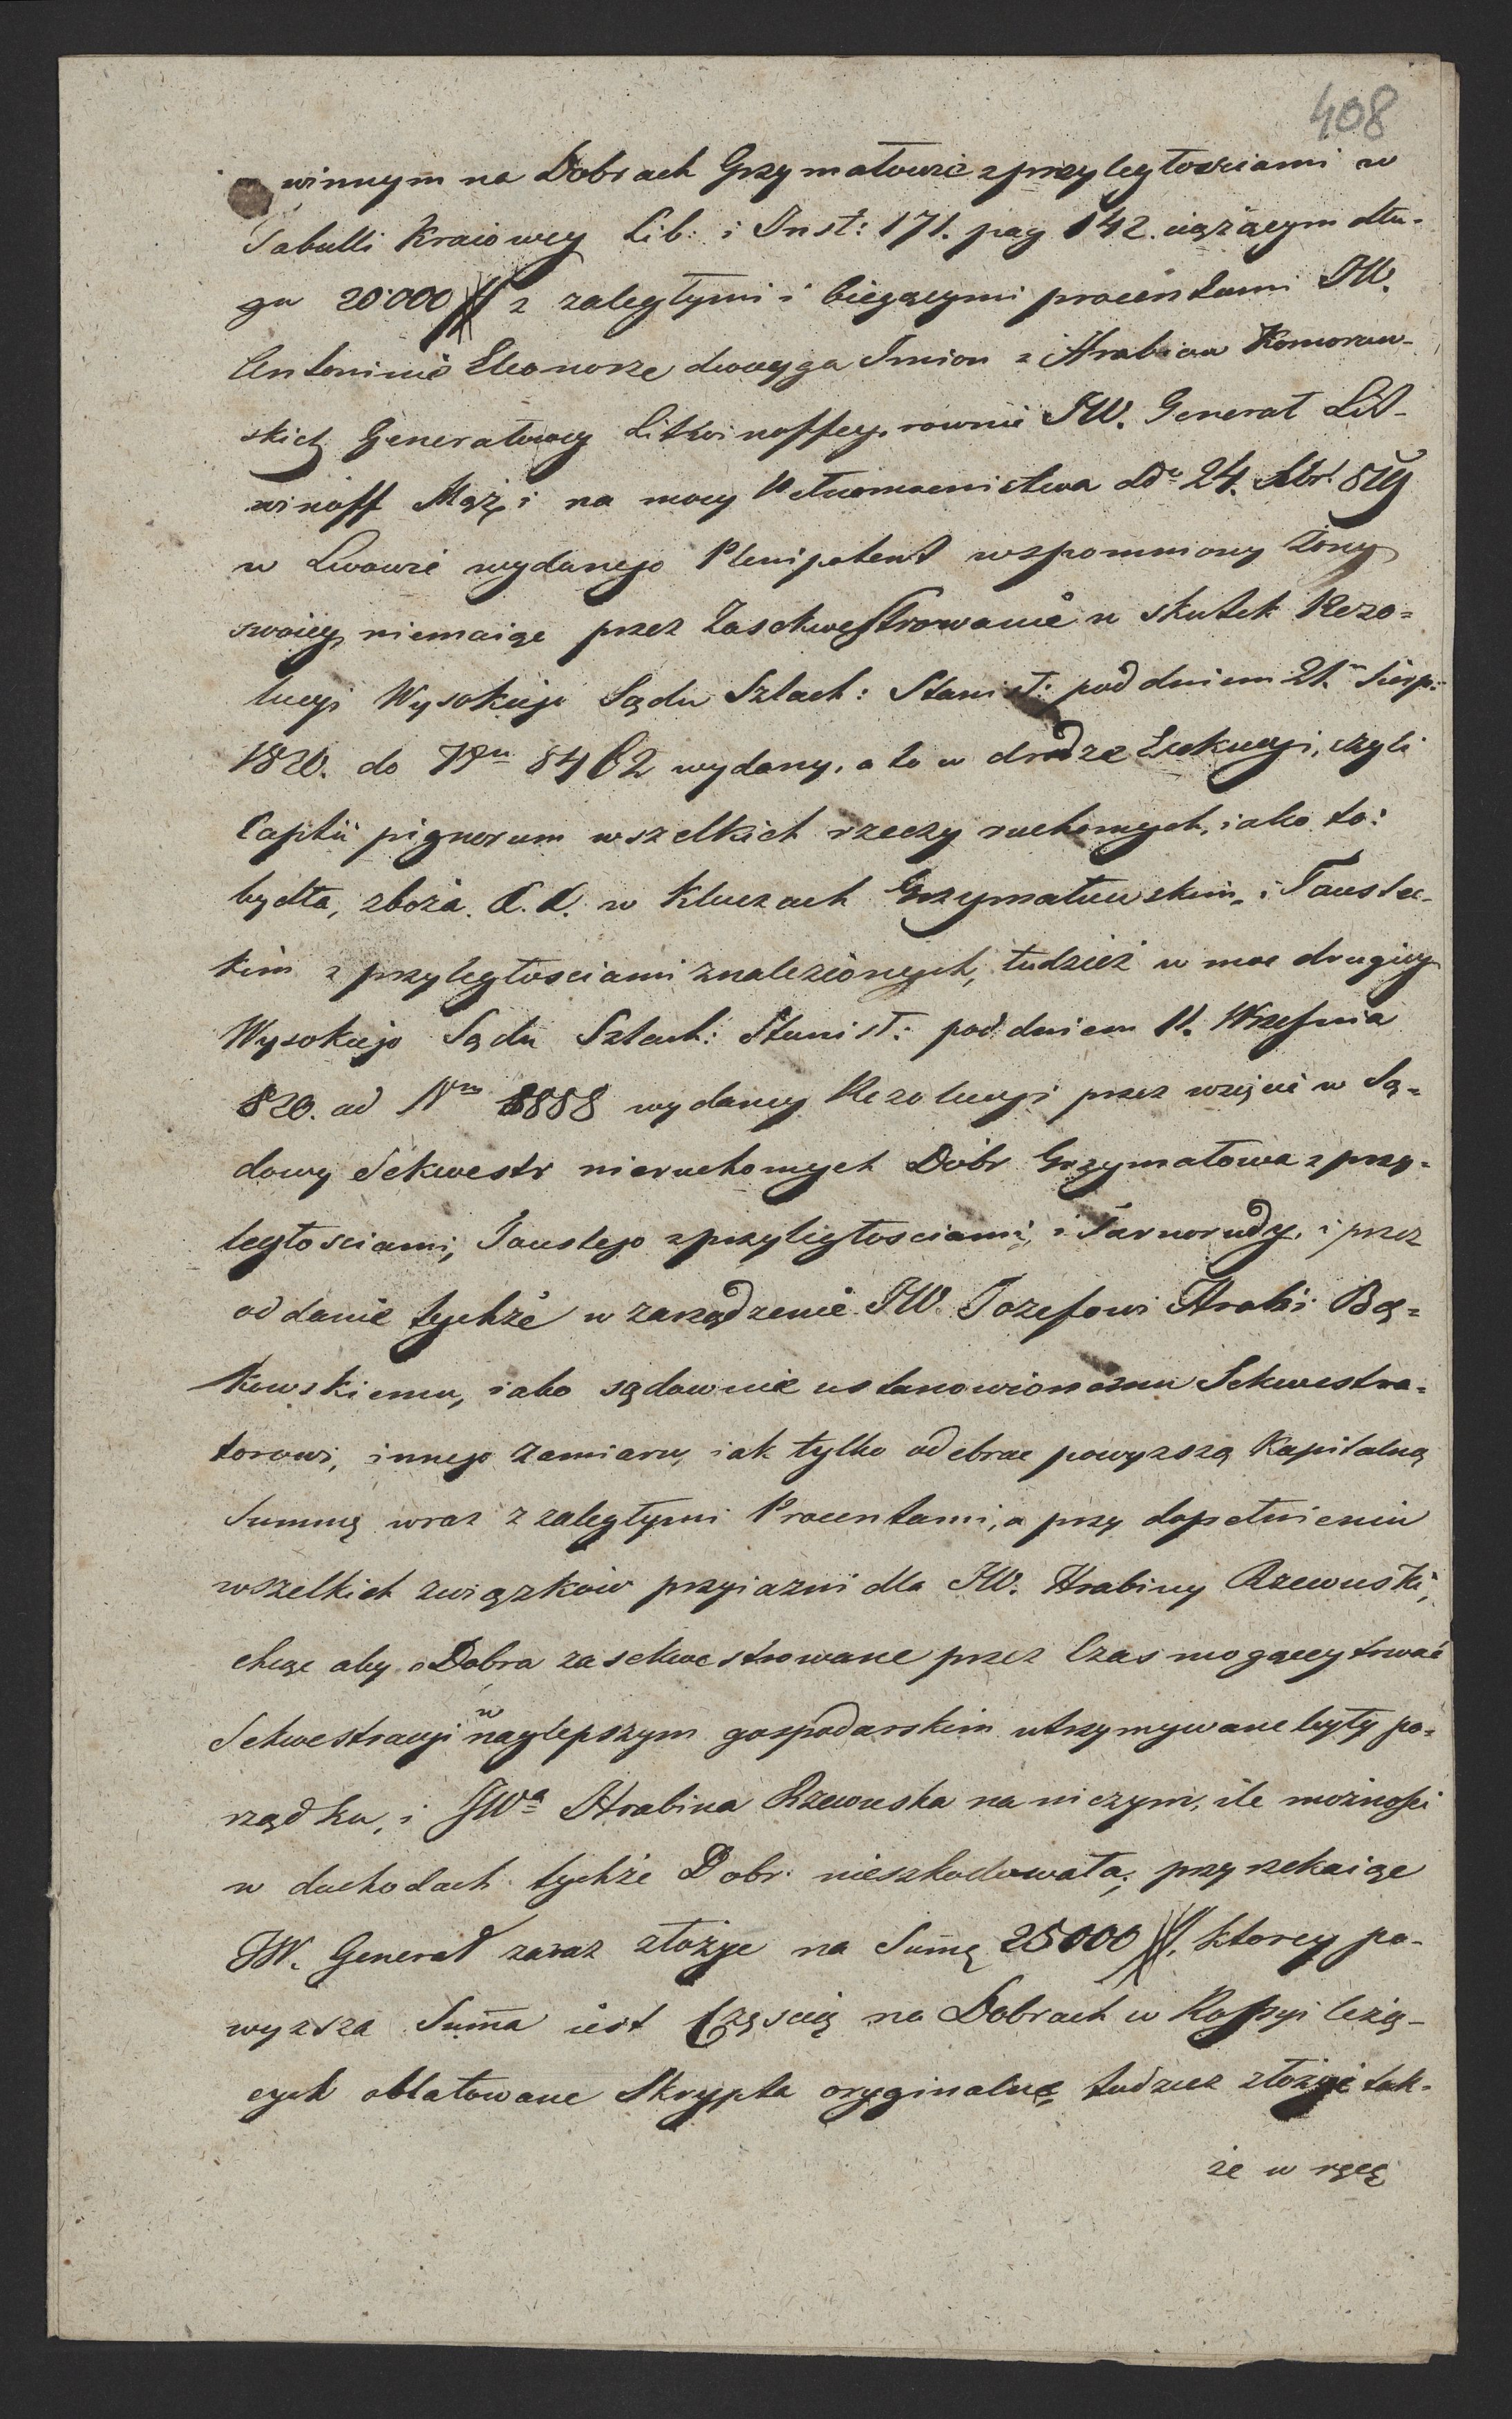 408
winnym na Dobrach Grzymałowie z przyległościami w
Tabulli Kraiowey Lib: i Inst: 171. pag 142. ciążącym dłu-
gu 20'000 # z zaległymi i bieżącymi procentami JW.
Antoninie Eleonorze dwoyga Imion z Hrabiow Komorow-
skich Generałowey Litwinoffey, rownie JW. Generał Lit-
winoff Mąż, i na mocy Pełnomocnictwa ddo 24. 8br. 819
w Lwowie wydanego Plenipotent wspomniony Zony
swoiey, niemaiąc przez Zasekwestrowanie w skutek Rezo=
lucyi Wysokiego Sądu Szlach: Stanisł: pod dniem 21. Sierp:
1820. do Nru 8462 wydany, a to w drodze Exekucyi, czyli
Captii pignorum wszelkich rzeczy ruchomych, iako to:
bydła, zboża. &. &. w Kluczach Grzymałowskim, i Touste-
kim z przyległosciami znalezionych, tudzież w moc drugiey
Wysokiego Sądu Szlach: Stanisł: pod dniem 11. Września
820. ad Nrm 8888 wydaney Rezolucyi przez wzięcie w Są=
dowy Sekwestr nieruchomych Dóbr Grzymałowa z przy=
ległosciami, Toustego z przyległosciami, i Tarnorudy, i przez
oddanie tychże w zarządzenie JW. Jozefowi Hrabi Bą=
kowskiemu, iako sądownie ustanowionemu Sekwestra=
torowi, innego zamiaru, iak tylko odebrac powyzszą Kapitalną
Summę wraz z zaległymi Procentami, a przy dopełnieniu
wszelkich związków przyiazni dla JW. Hrabiny Rzewuski,
chcąc aby Dobra zasekwestrowane przez Czas mogącey trwać
Sekwestracyi w naylepszym gospodarskim utrzymywane były po=
rządku, i JWa Hrabina Rzewuska na niczym, ile możności
w dochodach tychże Dobr nieszkodowała; przyrzekaiąc
JW. Generał zaraz złożyc na Sum̄ę 25000 #. ktorey po-
wyzsza Sum̄a iest Częscią na Dobrach w Rossyi leżą-
cych oblatowane Skrypta oryginalne, tudziez złożyć tak-
że w ręce